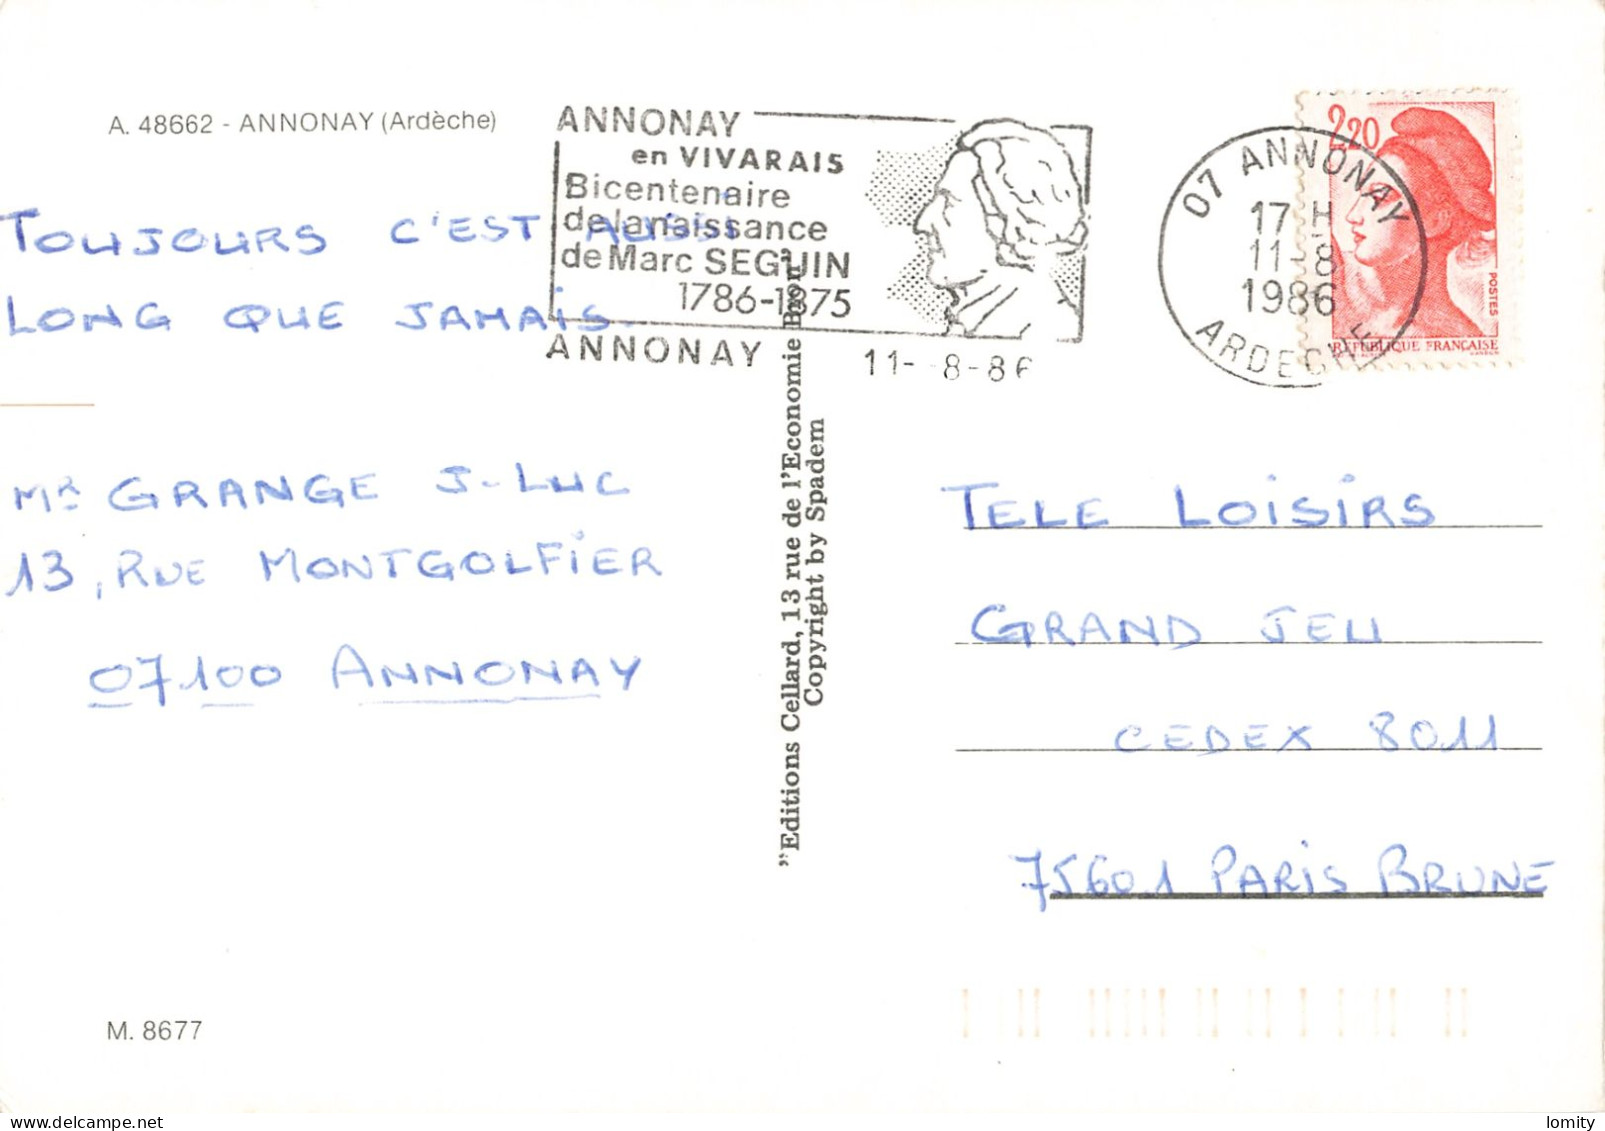 A. 48662 - ANNONAY (Ardèche)
ANNONAY
en VIVARAIS
Bicentenaire
de la naissance
de Marc SEGUIN
1786-1875
ANNONAY
11- -8-86
07 ANNONAY
17 H
11-8
1986
ARDECHE
2,20
POSTES
REPUBLIQUE FRANÇAISE
TOUJOURS C'EST AUSSI
LONG QUE JAMAIS.
MR GRANGE J-LUC
13, RUE MONTGOLFIER
07100 ANNONAY
"Editions Cellard, 13 rue de l'Economie Bron"
Copyright by Spadem
TELE LOISIRS
GRAND JEU
CEDEX 8011
75601 PARIS BRUNE
M. 8677
delcampe.net
lomity